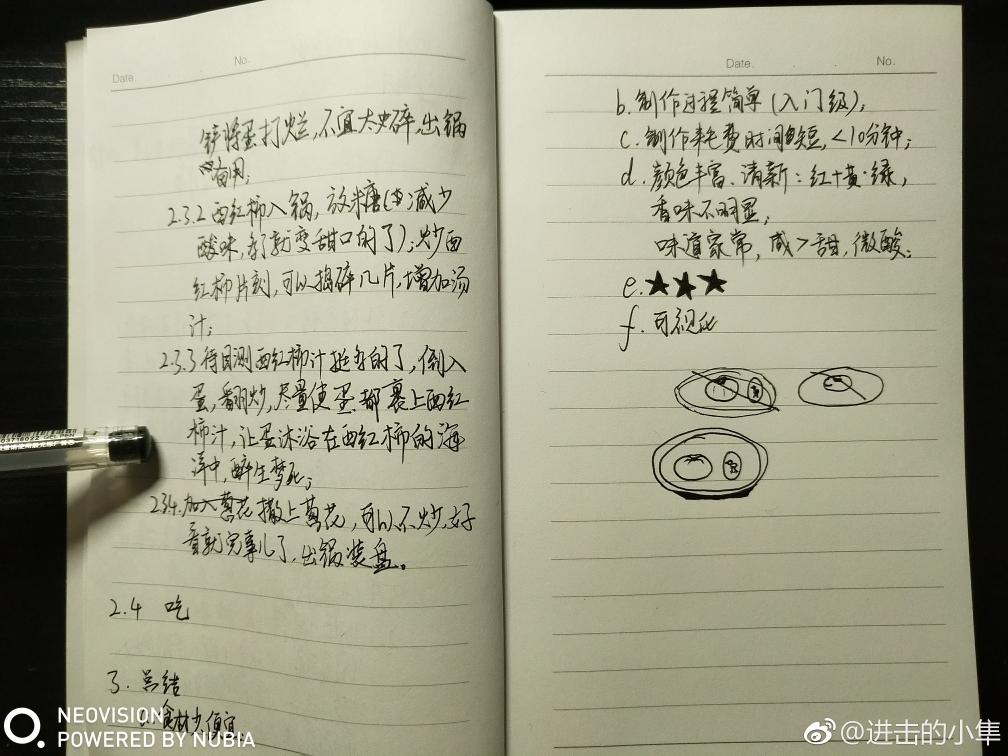 Date.
No.
铲将蛋打烂,不宜太碎,出锅
备用;
2.3.2 西红柿入锅,放米糖(减少
酸味,多了就变甜口的了);炒西
红柿片刻,可以捣碎几片,增加汤
汁;
2.3.3 待目测西红柿汁挺多的了,倒入
蛋,翻炒,尽量使蛋都裹上西红
柿汁,让蛋沐浴在西红柿的海
洋中,醉生梦死;
2.3.4. 加入葱花 撒上葱花,可以不炒,好
看就完事儿了,出锅装盘。
2.4 吃
3. 总结
a. 食材少,便宜;
Date.
No.
b. 制作过程简单(入门级);
c. 制作耗费时间短,<10分钟;
d. 颜色丰富、清新:红+黄+绿,
香味不明显,
味道家常,咸>甜,微酸;
e. ★★★
f. 可视化
NEOVISION
POWERED BY NUBIA
@进击的小隼